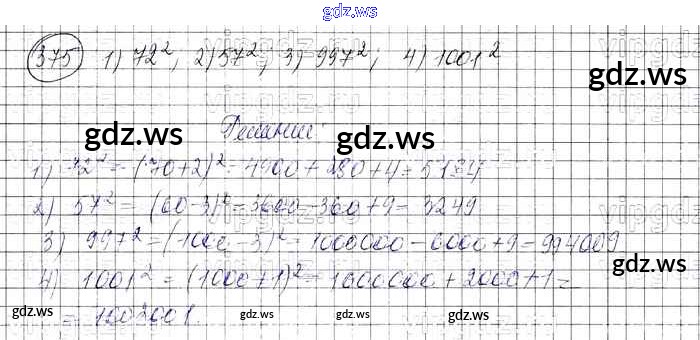 gdz.ws
375 1) 72²; 2) 57²; 3) 997²; 4) 1001²
Решение:
1) 72² = (70+2)² = 4900 + 280 + 4 = 5184
2) 57² = (60-3)² = 3600 - 360 + 9 = 3249
3) 997² = (1000-3)² = 1000000 - 6000 + 9 = 994009
4) 1001² = (1000+1)² = 1000000 + 2000 + 1 =
= 1002001.
gdz.ws gdz.ws gdz.ws
gdz.ws gdz.ws
gdz.ws gdz.ws gdz.ws